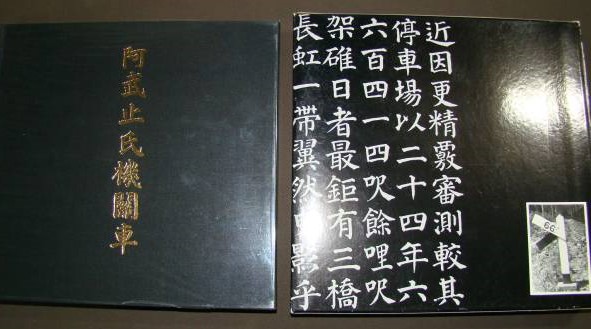 阿武止氏機關車
近因更精覈審測較其
停車場以二十四年六
六百四一四呎餘哩呎
架碓日者最鉅有三橋
長虹一帶翼然曳影乎
66